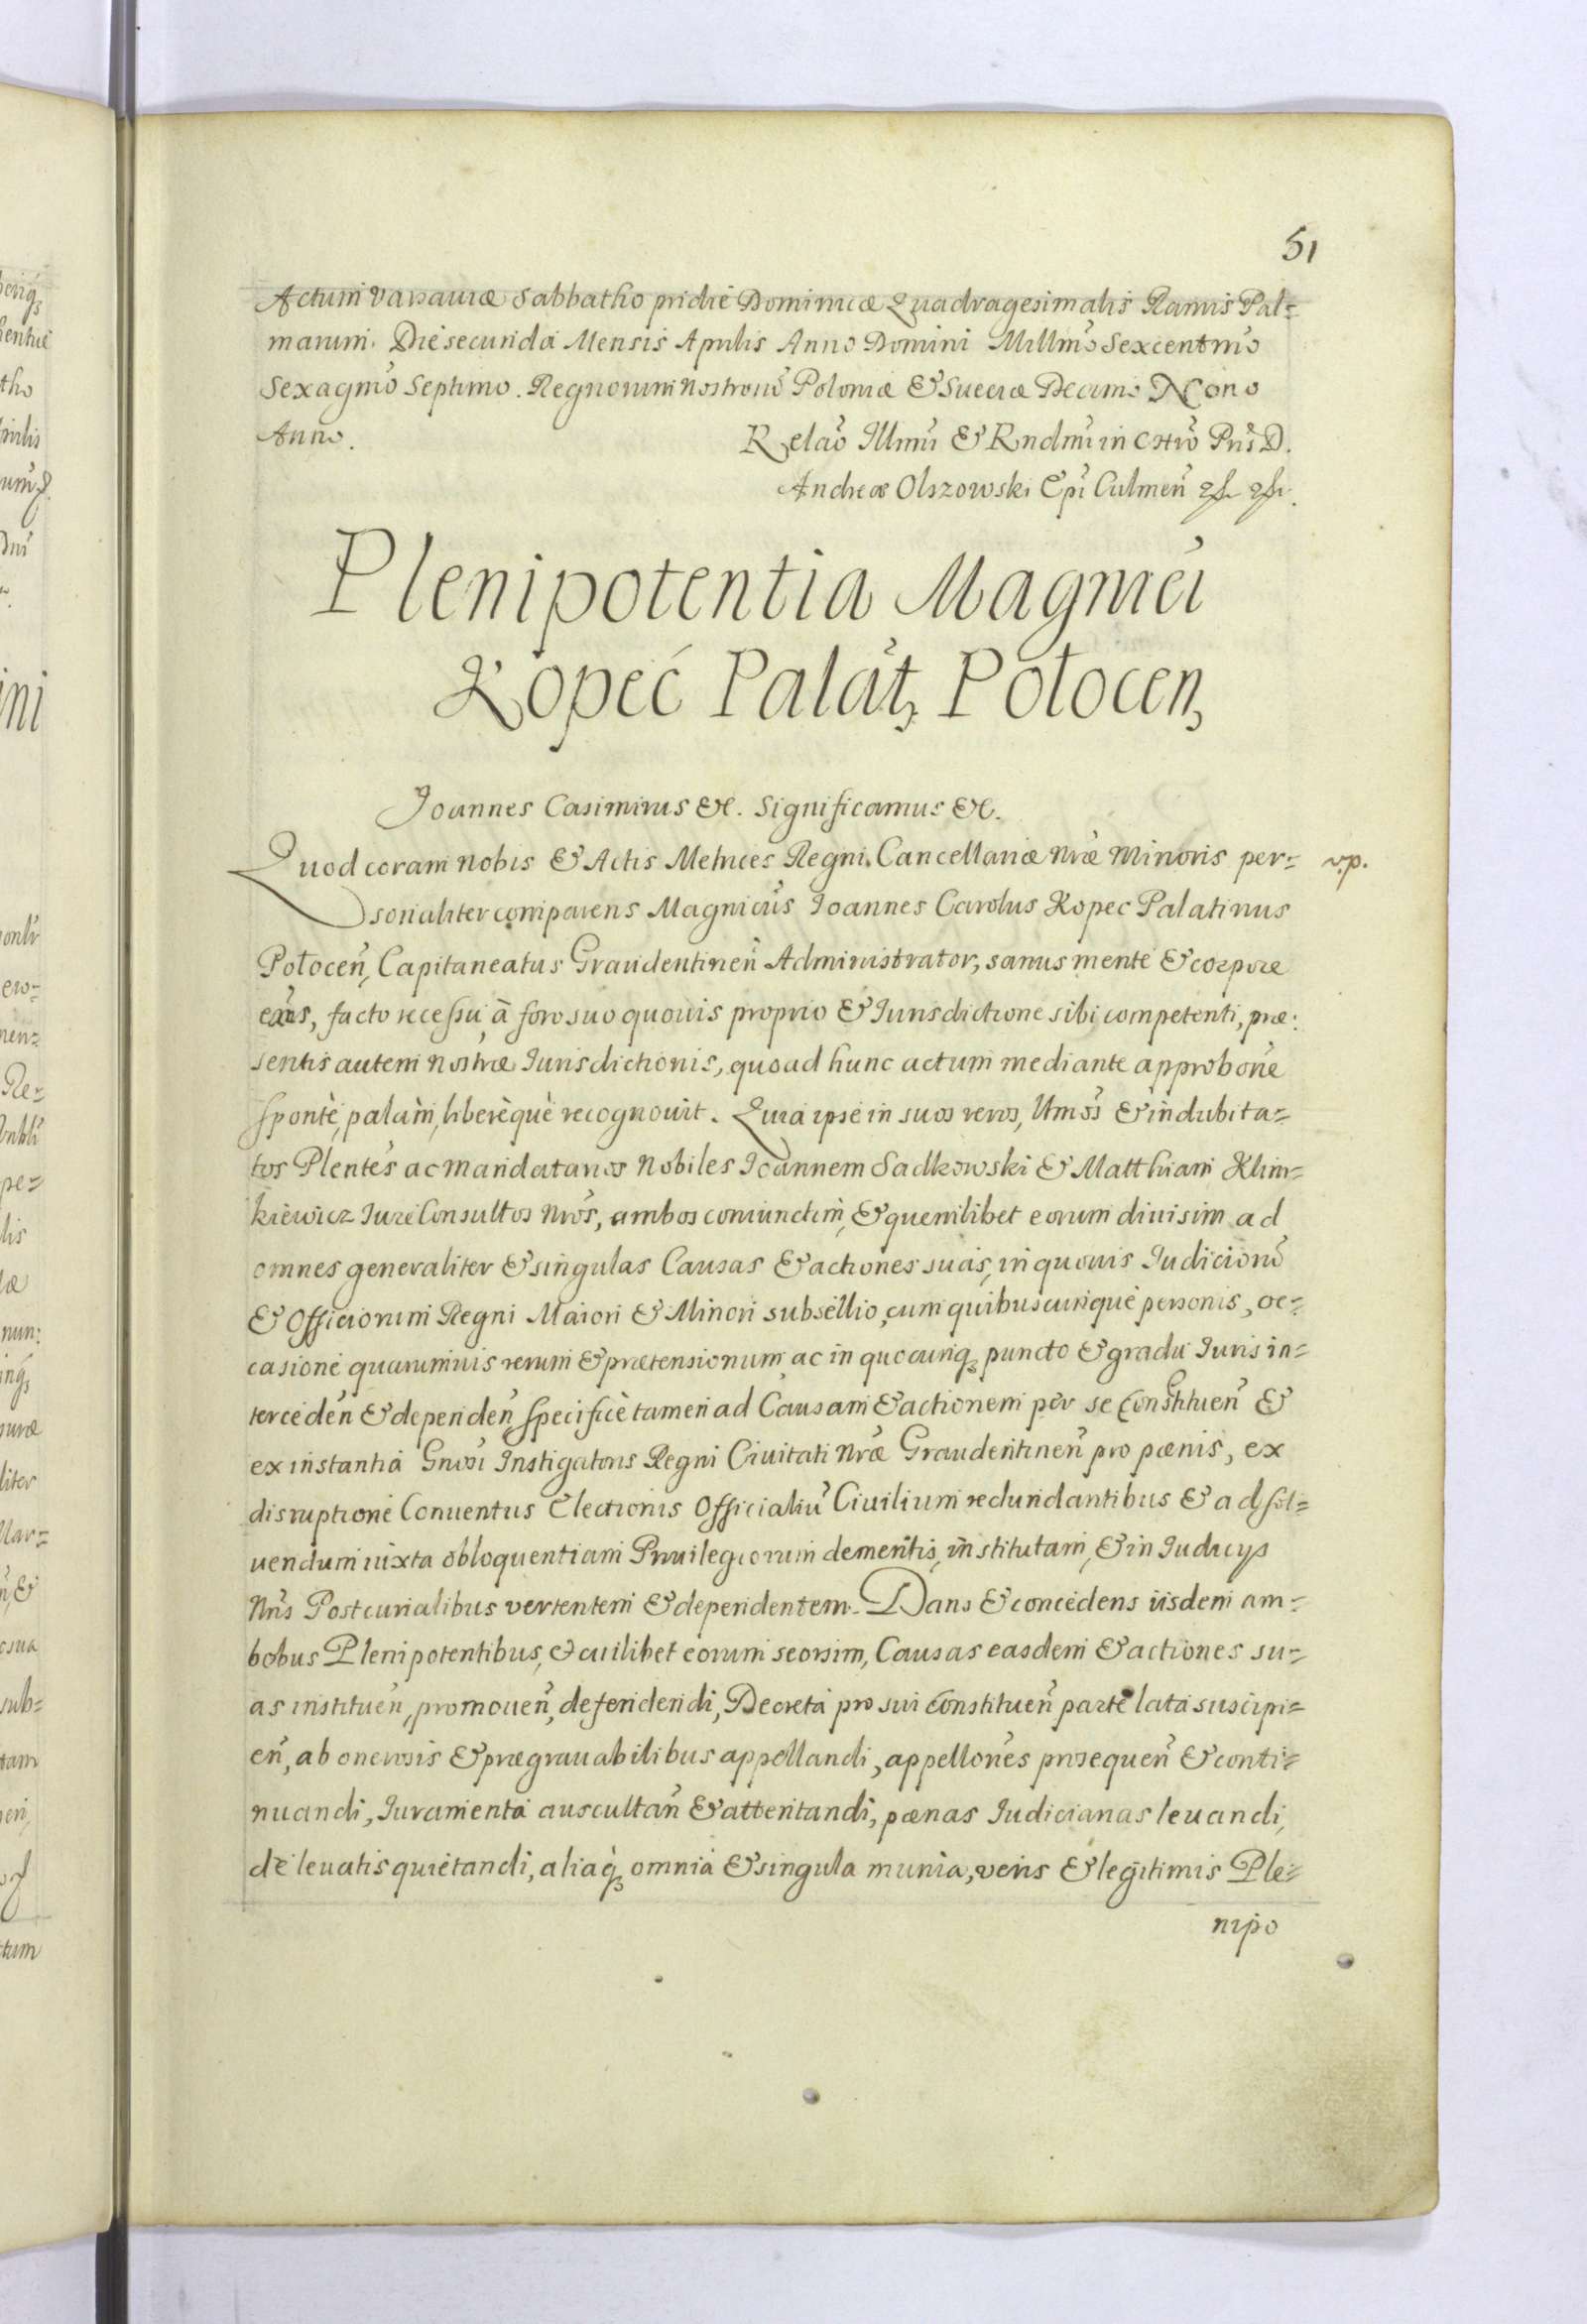 51
Actum Varsauiæ Sabbatho pridie Dominicæ Quadragesimalis Ramis Pal=
marum. Die secunda Mensis Aprilis Anno Domini Millmo Sexcentmo
Sexagmo Septimo. Regnorum nostroru Poloniæ & Sueciæ Decimo Nono
Anno.
Relao Illmi & Rndmi in Chro Pris D.
Andreæ Olszowski Epi Culmen
Plenipotentia Magnici
Kopeć Palat, Polocen,
Joannes Casimirus &c. Significamus &c.
Quod coram nobis & Actis Metrices Regni Cancellariæ nræ Minoris per= v.p.
sonaliter comparens Magnicus Joannes Carolus Kopec Palatinus
Polocen, Capitaneatus Graudentinen Administrator, sanus mente & corpore
exns, facto recessu à foro suo quouis proprio & Iurisdictione sibi competenti, præ:
sentis autem nostræ Iurisdictionis, quoad hunc actum mediante approbone
sponte, palàm, liberèquè recognouit. Quia ipse in suos veros, ltmos & indubita=
tos Plentes ac mandatarios Nobiles Joannem Sadkowski & Matthiam Klim=
kiewicz Jure Consultos nros, ambos coniunctim, & quemlibet eorum diuisim ad
omnes generaliter & singulas Causas & actiones suas, in quouis Iudicioru
& Officiorum Regni Maiori & Minori subsellio, cum quibuscunque personis, oc=
casione quarumuis rerum & prætensionum ac in quocunq, puncto & gradu Iuris in=
terceden & dependen, specificè tamen ad Causam & actionem per se Constituen &
ex instantia Gnosi Instigatoris Regni Ciuitati nræ Graudentinen pro pænis, ex
disruptione Conuentus Electionis Officialiu Ciuilium redundantibus & ad sol=
uendum iuxta obloquentiam Priuilegiorum demeritis, institutam, & in Iudicys
nris Postcurialibus vertentem & dependentem. Dans & concedens iisdem am=
bobus Plenipotentibus, & cuilibet eorum seorsim, Causas easdem & actiones su=
as instituen, promouen, defendendi, Decreta pro sui Constituen parte lata suscipi=
en, ab onerosis & prægrauabilibus appellandi, appellones prosequen & conti=
nuandi, Iuramenta auscultan & attentandi, pænas Iudicianas leuandi,
de leuatis quietandi, aliaq, omnia & singula munia, veris & legitimis Ple=
nipo